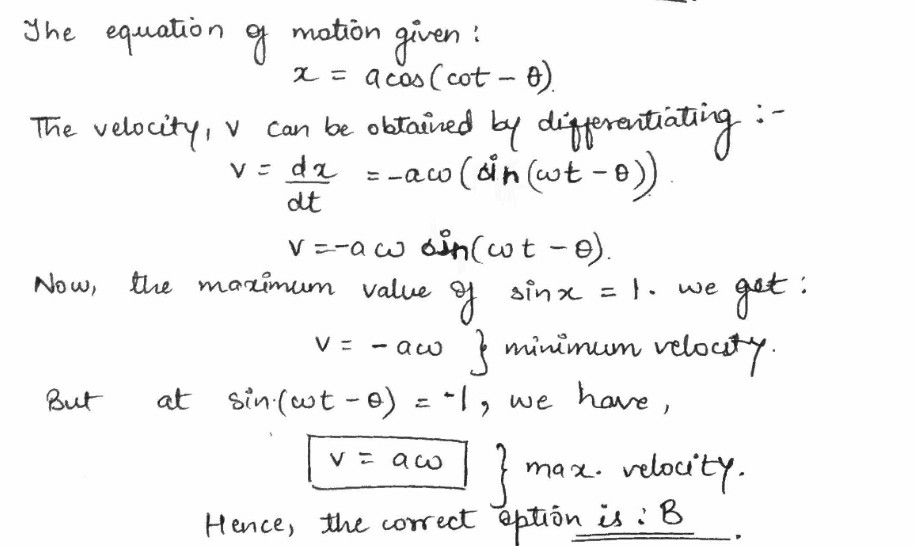 The equation of motion given :
x = a cos(ωt − θ).
The velocity, v can be obtained by differentiating :-
v = dx/dt = -aω(sin(ωt − θ)).
v = -aω sin(ωt − θ).
Now, the maximum value of sinx = 1. we get :
v = - aω } minimum velocity.
But at sin(ωt − θ) = -1, we have,
v = aω } max. velocity.
Hence, the correct option is : B.